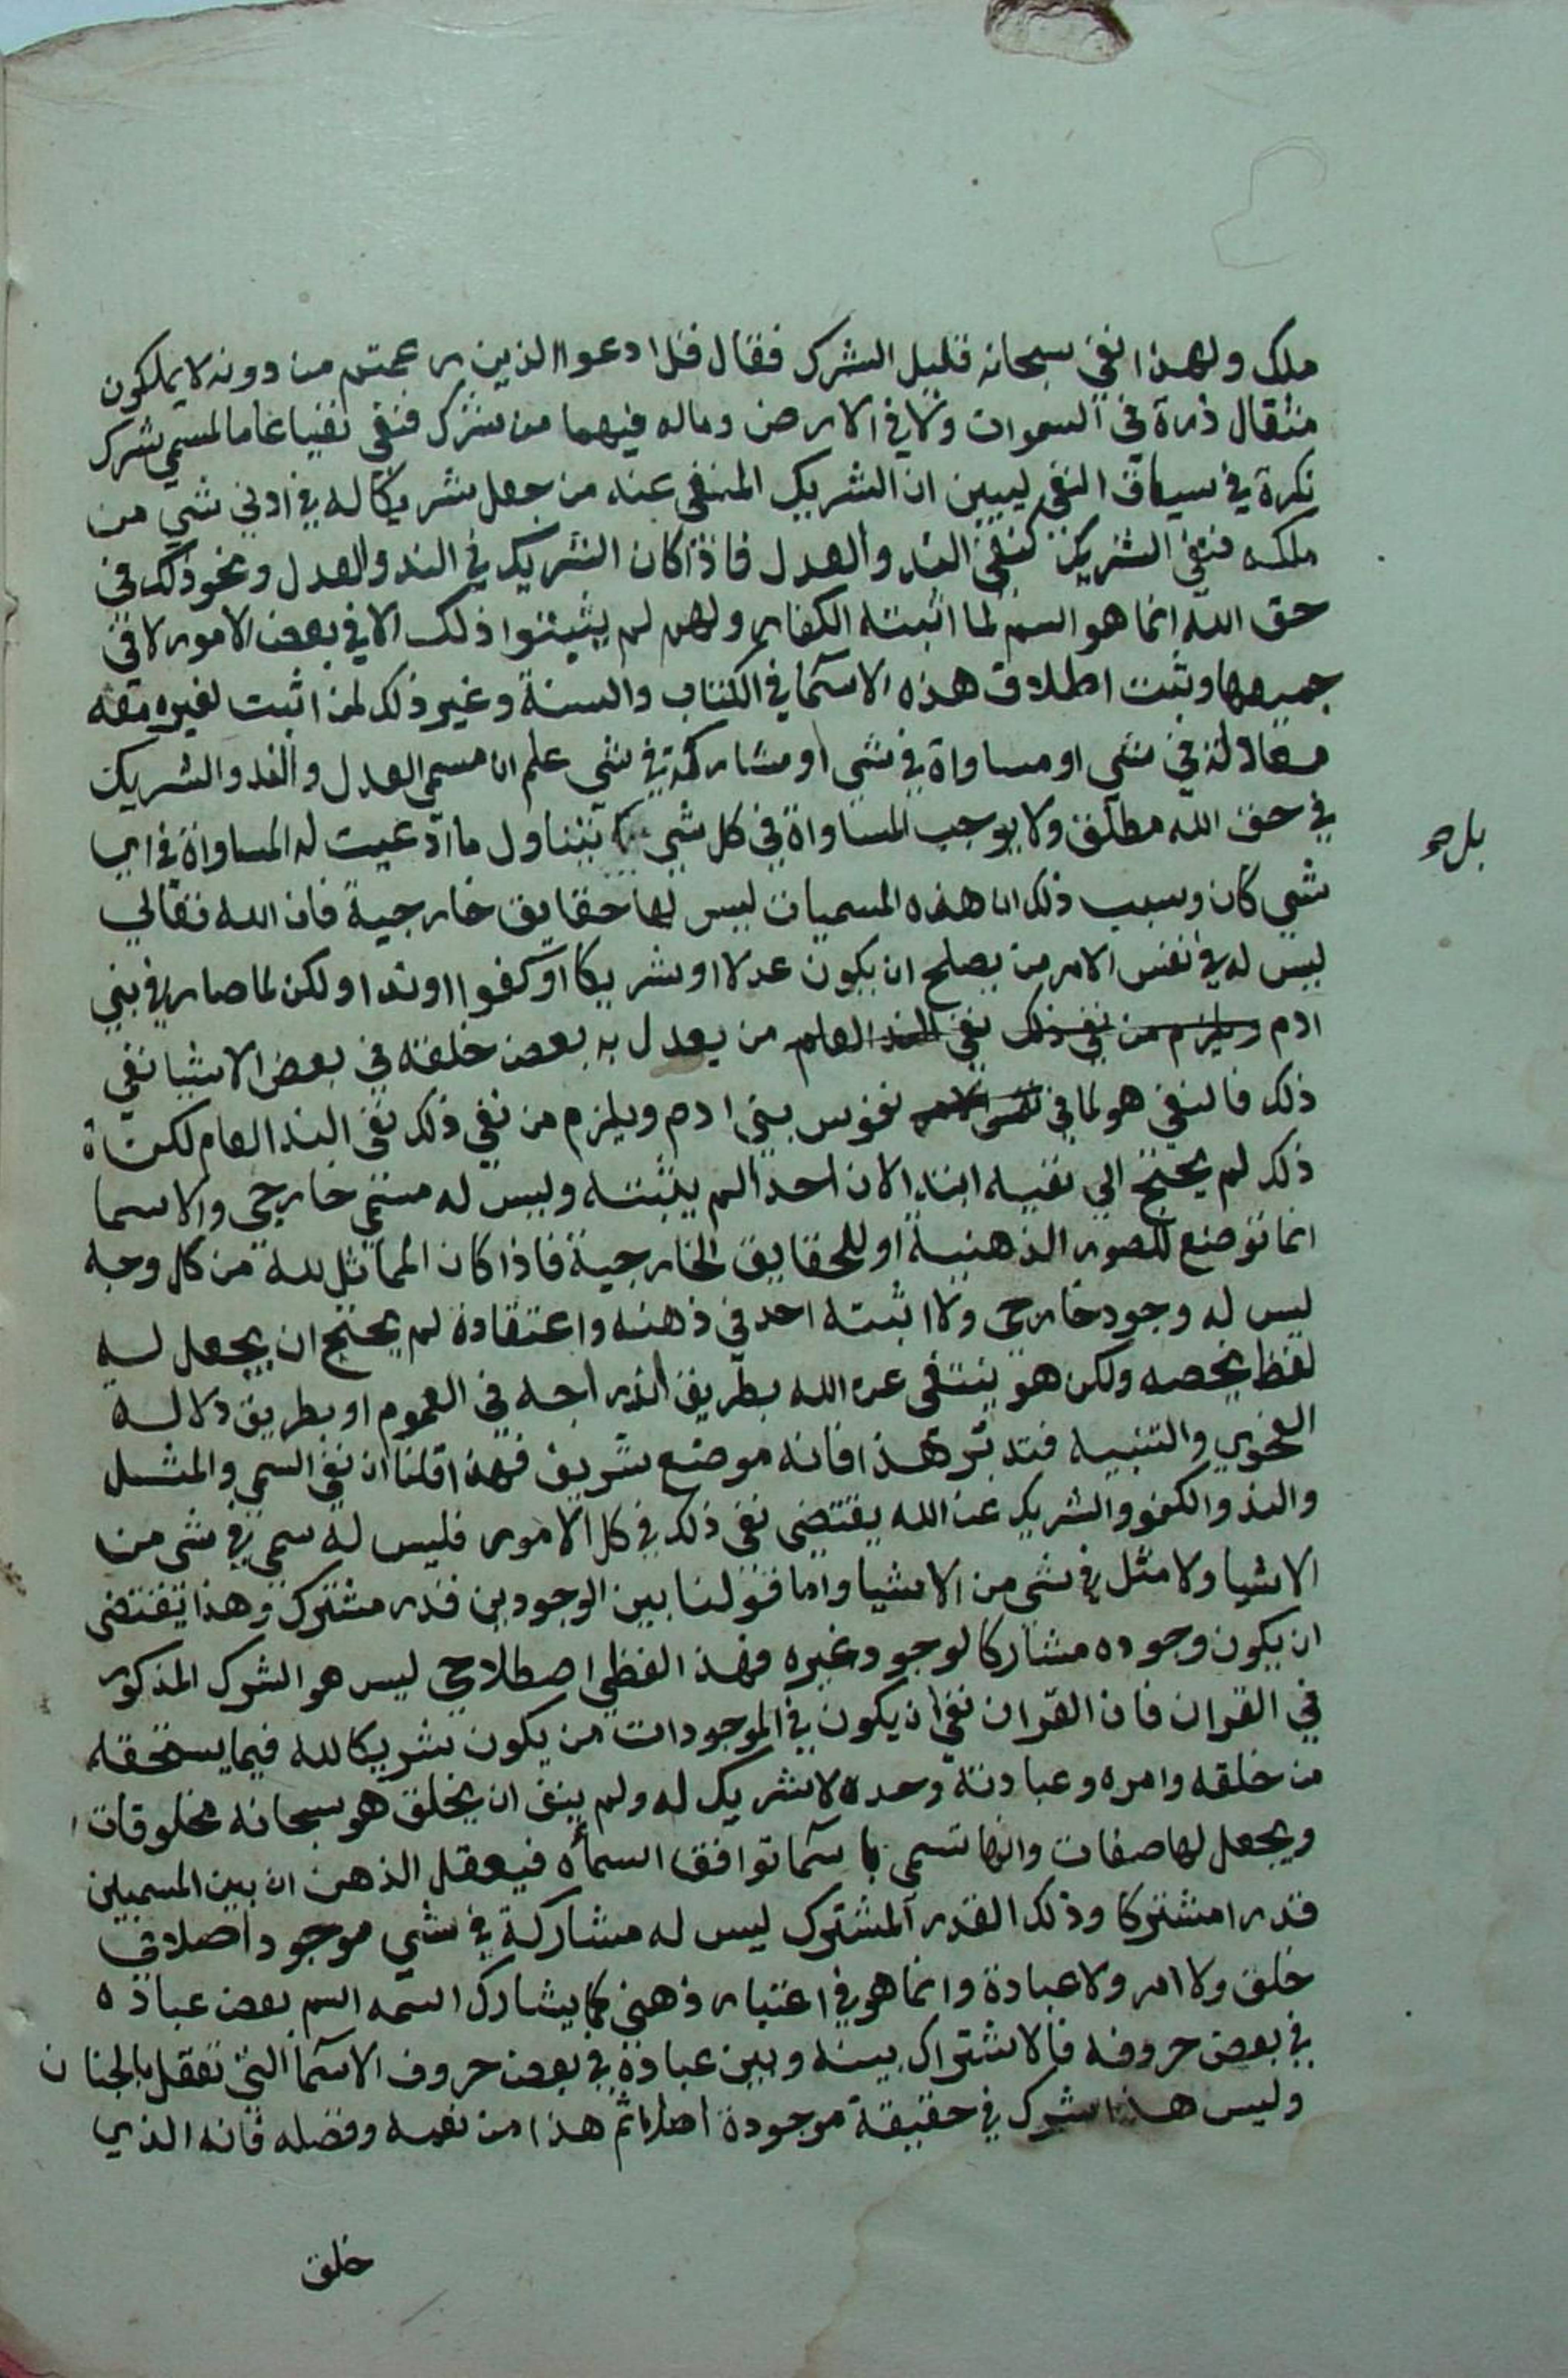 ملك ولهذا نفي سبحانه قليل الشرك فقال قل ادعوا الذين زعمتم من دونه لا يملكون
مثقال ذرة في السموات ولا في الارض وماله فيهما من شرك فنفي نفيا عاما لمسمي شرك
نكرة في سياق النفي ليبين ان الشريك المنفي عنه من جعل شريكا له في ادني شي من
ملكه فنفي الشريك كنفي الند والعدل فاذا كان الشريك في الند والعدل ونحو ذلك في
حق الله انما هو اسم لما اثبته الكفار وهم لم يثبتوا ذلك الا في بعض الامور لا في
جميعها وثبت اطلاق هذه الاسما في الكتاب والسنة وغير ذلك لمن اثبت لغيره معه
معادلة في شي او مساواة في شي او مشاركة في شي علم ان مسمي العدل والند والشريك
في حق الله مطلق ولا يوجب المساواة في كل شي يتناول ما ادعيت له المساواة في اي
بل صح
شي كان وسبب ذلك ان هذه المسميات ليس لها حقايق خارجية فان الله تعالي
ليس له في نفس الامر من يصلح ان يكون عدلا او شريكا او كفوا او ندا ولكن لما صار في بني
ادم ويلزم من نفي ذلك نفي الند العام من يعدل به بعض خلقه في بعض الاشيا نفي
ذلك فالنفي هو لما في نفس الامر نفوس بني ادم ويلزم من نفي ذلك نفي الند العام لكن
ذلك لم يحتج الي نفيه ابتدا لان احدا لم يثبته وليس له مسمي خارجي والاسما
انما توضع للصور الذهنية او للحقايق الخارجية فاذا كان المماثل لله من كل وجه
ليس له وجود خارجي ولا اثبته احد في ذهنه واعتقاده لم يحتج ان يجعل له
لفظ يخصه ولكن هو ينتفي عن الله بطريق اندراجه في العموم او بطريق دلالة
الفحوي والتنبيه فتدبر هذا فانه موضع شريف فهذا قلنا ان نفي السمي والمثل
والند والكفو والشريك عن الله يقتضي نفي ذلك في كل الامور فليس له سمي في شي من
الاشيا ولا مثل في شي من الاشيا واما قولنا بين الوجودين قدر مشترك وهذا يقتضي
ان يكون وجوده مشاركا لوجود غيره فهذا لفظي اصطلاحي ليس هو الشرك المذكور
في القران فان القران نفي ان يكون في الموجودات من يكون شريكا لله فيما يستحقه
من خلقه وامره وعبادته وحده لا شريك له ولم ينف ان يخلق هو سبحانه مخلوقات
ويجعل لها صفات وانها تسمي باسما توافق اسماه فيعقل الذهن ان بين المسميين
قدرا مشتركا وذلك القدر المشترك ليس له مشاركة في شي موجود اصلا في
خلق ولا امر ولا عبادة وانما هو في اعتبار ذهني كما يشارك اسمه اسم بعض عباده
في بعض حروفه فالاشتراك بينه وبين عباده في بعض حروف الاسما التي تعقل بالجنان
وليس هذا شرك في حقيقة موجودة اصلا ثم هذا من نعمه وفضله فانه الذي
خلق